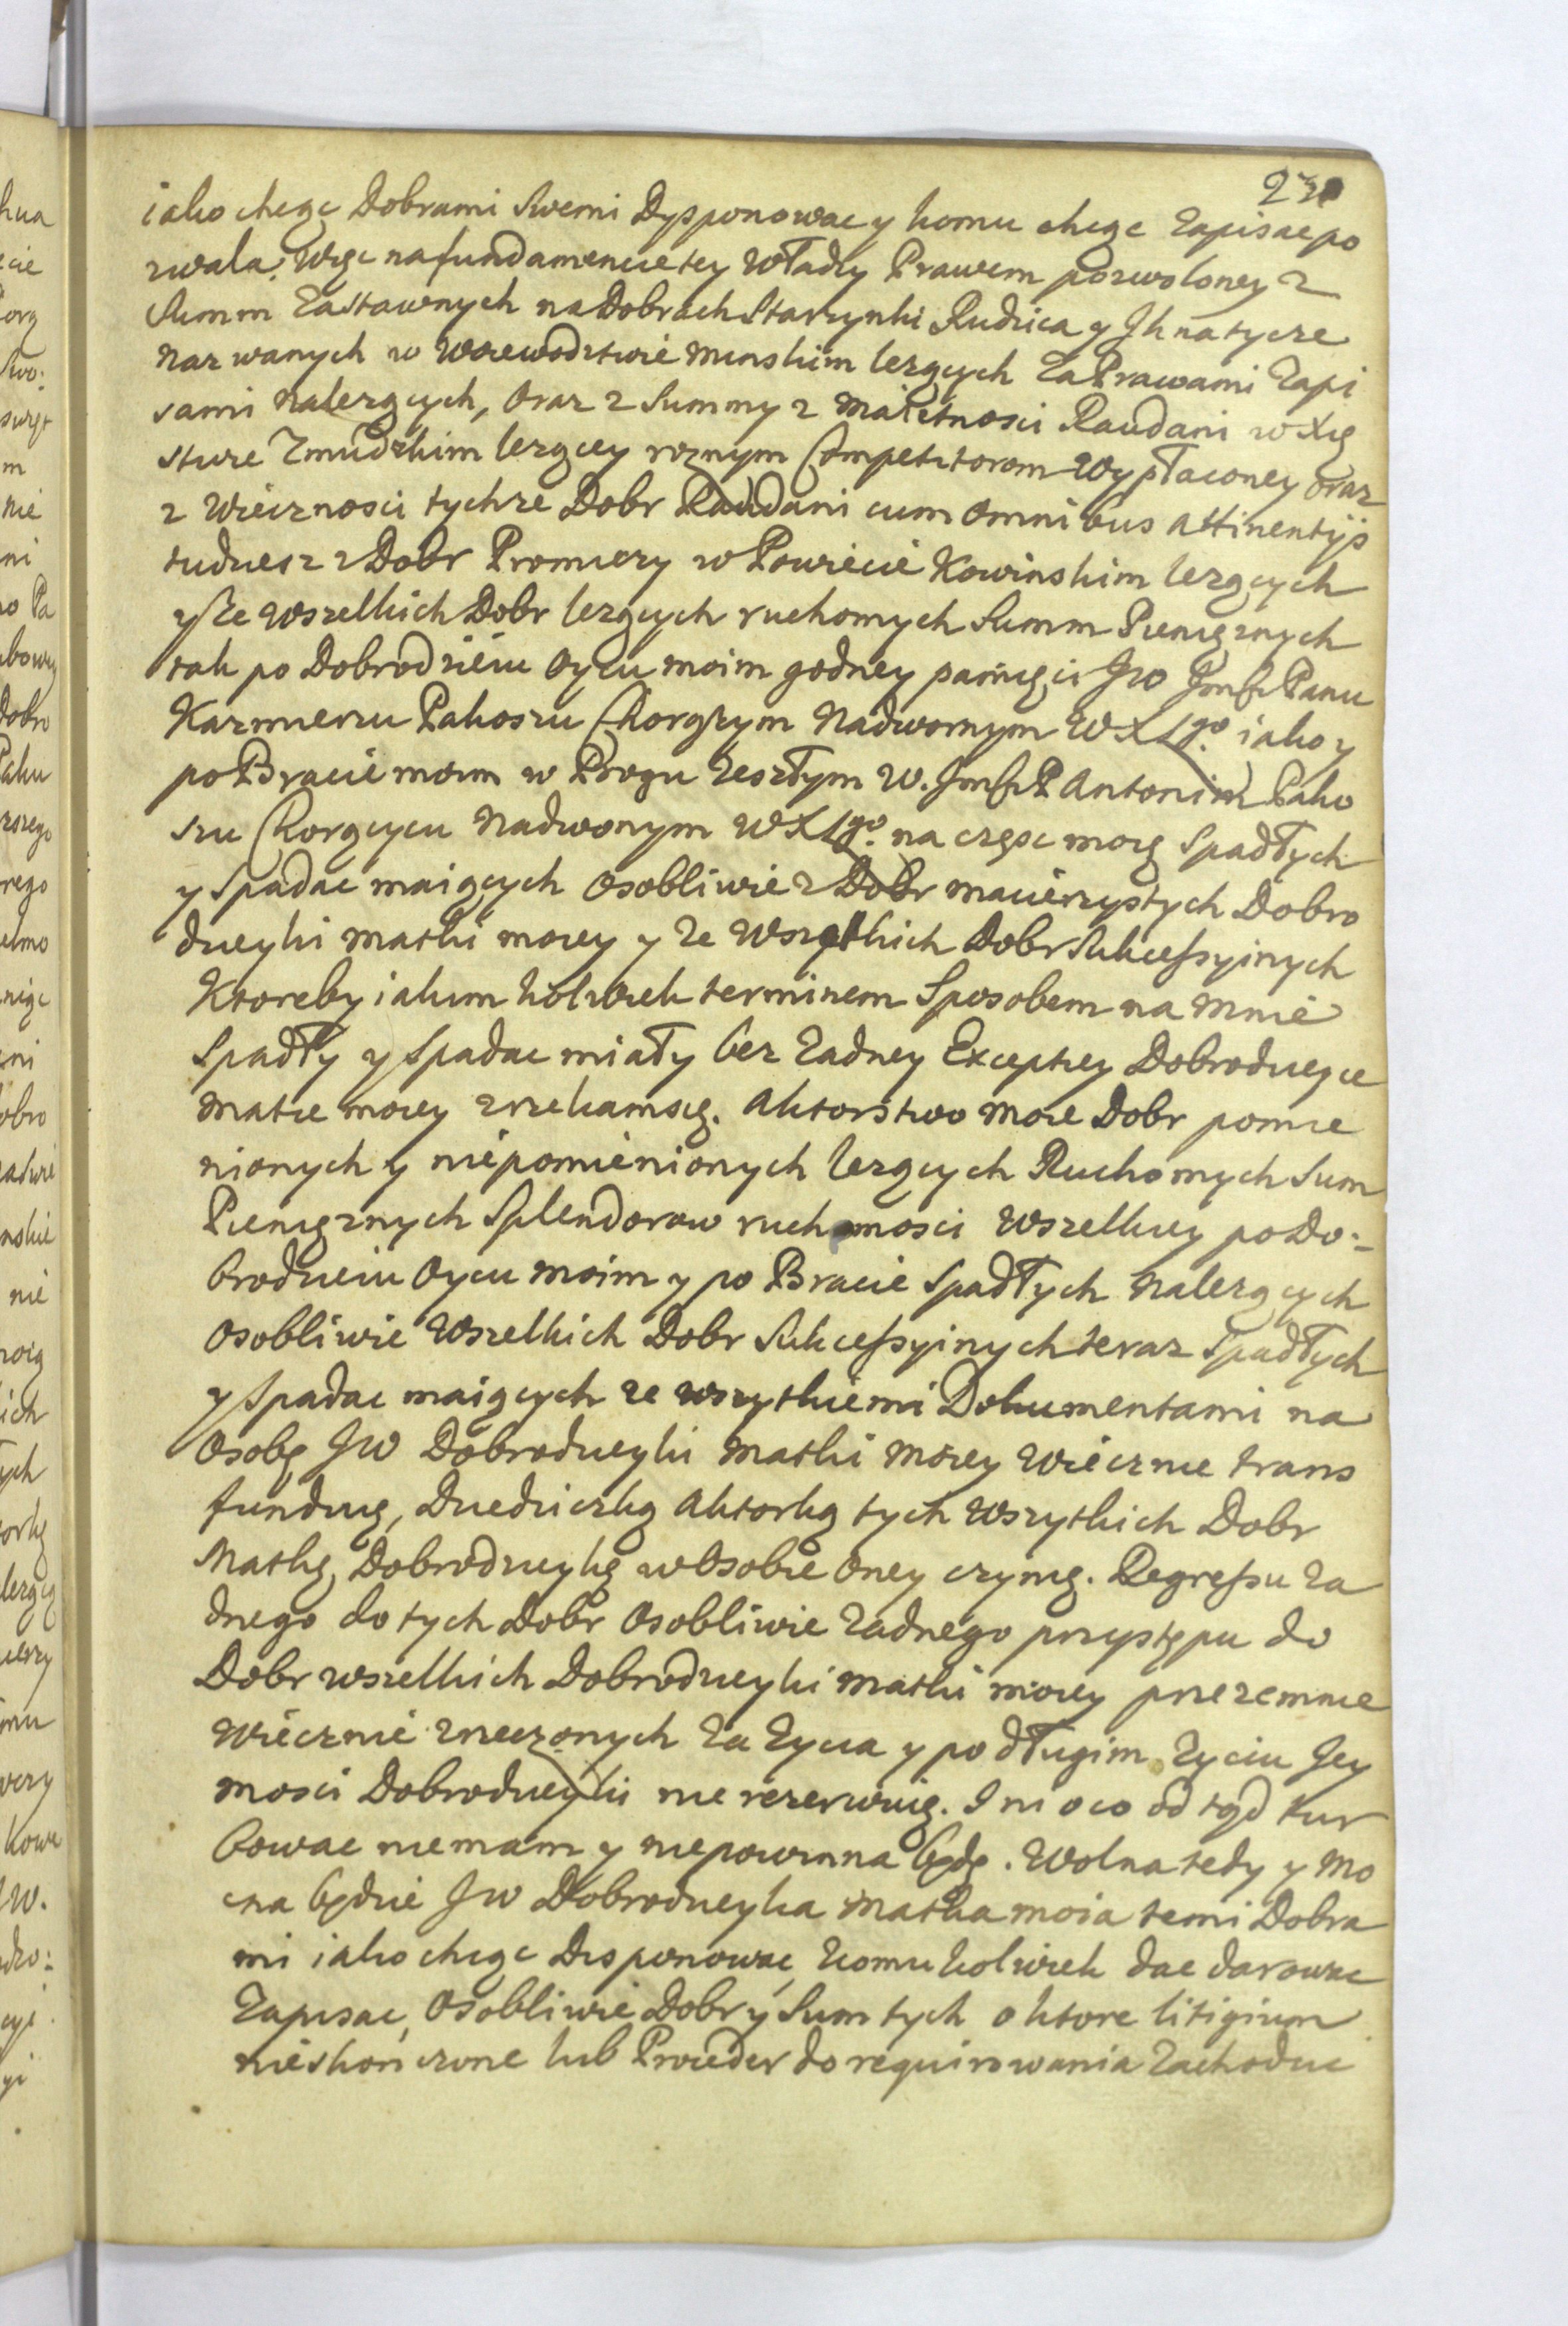 iako chcąc Dobrami swemi Dysponowac y komu chcąc Zapisac po
zwala, Więc na fundamencie tey Władzy Prawem pozwoloney z
Summ Zastawnych na Dobrach Starzynki Rudzica y Ihnatycze
nazwanych w Woiewodztwie Minskim lezących Za Prawami Zapi
sami nalezących, Oraz z Summy z Maiętnosci Raudani w Xię
stwie Zmudzkim lezącey roznym Competitorom Wypłaconey oraz
z Wiecznosci tychze Dobr Raudani cum omnibus attinentijs
tudziesz z Dobr Promiezy w Powiecie Kowinskim lezących
y ze wszelkich Dobr lezących ruchomych Summ Pienięznych
tak po Dobrodzieiu Oycu moim godney pamięci JW Jmść Panu
Kazimierzu Pakoszu Chorązym Nadwornym WXLgo. iako y
po Bracie moim w Bogu Zeszłym W. Jmść P Antonim Pako
szu Chorązycu Nadwornym WXLgo. na częsc moię Spadłych
y Spadac maiących osobliwie z Dobr macierzystych Dobro
dzieyki matki moiey y ze wszytkich Dobr Sukcessyinych
Ktoreby iakim kolwiek terminem Sposobem na mnie
Spadły y Spadac miały bez Zadney Exceptiey Dobrodzieyce
matce moiey zrzekamsię. Aktorstwo moie Dobr pomie
nionych y niepomienionych lezących Ruchomych Sum
Pienięznych Splendorow ruchomosci wszelkiey po Do:
brodzieiu Oycu moim y po Bracie Spadłych nalezących
osobliwie Wszelkich Dobr Sukcessyinych teraz Spadłych
y Spadac maiących ze wszytkiemi Dokumentami na
Osobę JW Dobrodzieyki matki moiey wiecznie trans
funduię, Dziedziczką Aktorką tych wszytkich Dobr
Matkę Dobrodzieykę w Osobie Oney czynię. Regressu Za
dnego do tych Dobr Osobliwie Zadnego przystępu do
Dobr wszelkich Dobrodzieyki matki moiey przezemnie
wiecznie zrzeczonych za Zycia y po długim Zyciu Jey
mosci Dobrodzieyki nie rezerwuię. I ni o co od tąd tur
bowac niemam y niepowinna będę. Wolna tedy y mo
cna będzie JW Dobrodzieyka matka moia temi Dobra
mi iako chcąc Disponowac, komukolwiek dac darowac
Zapisac, osobliwie Dobr y Sum tych o ktore litigium
nieskonczone lub Proceder do requirowania Zachodzi